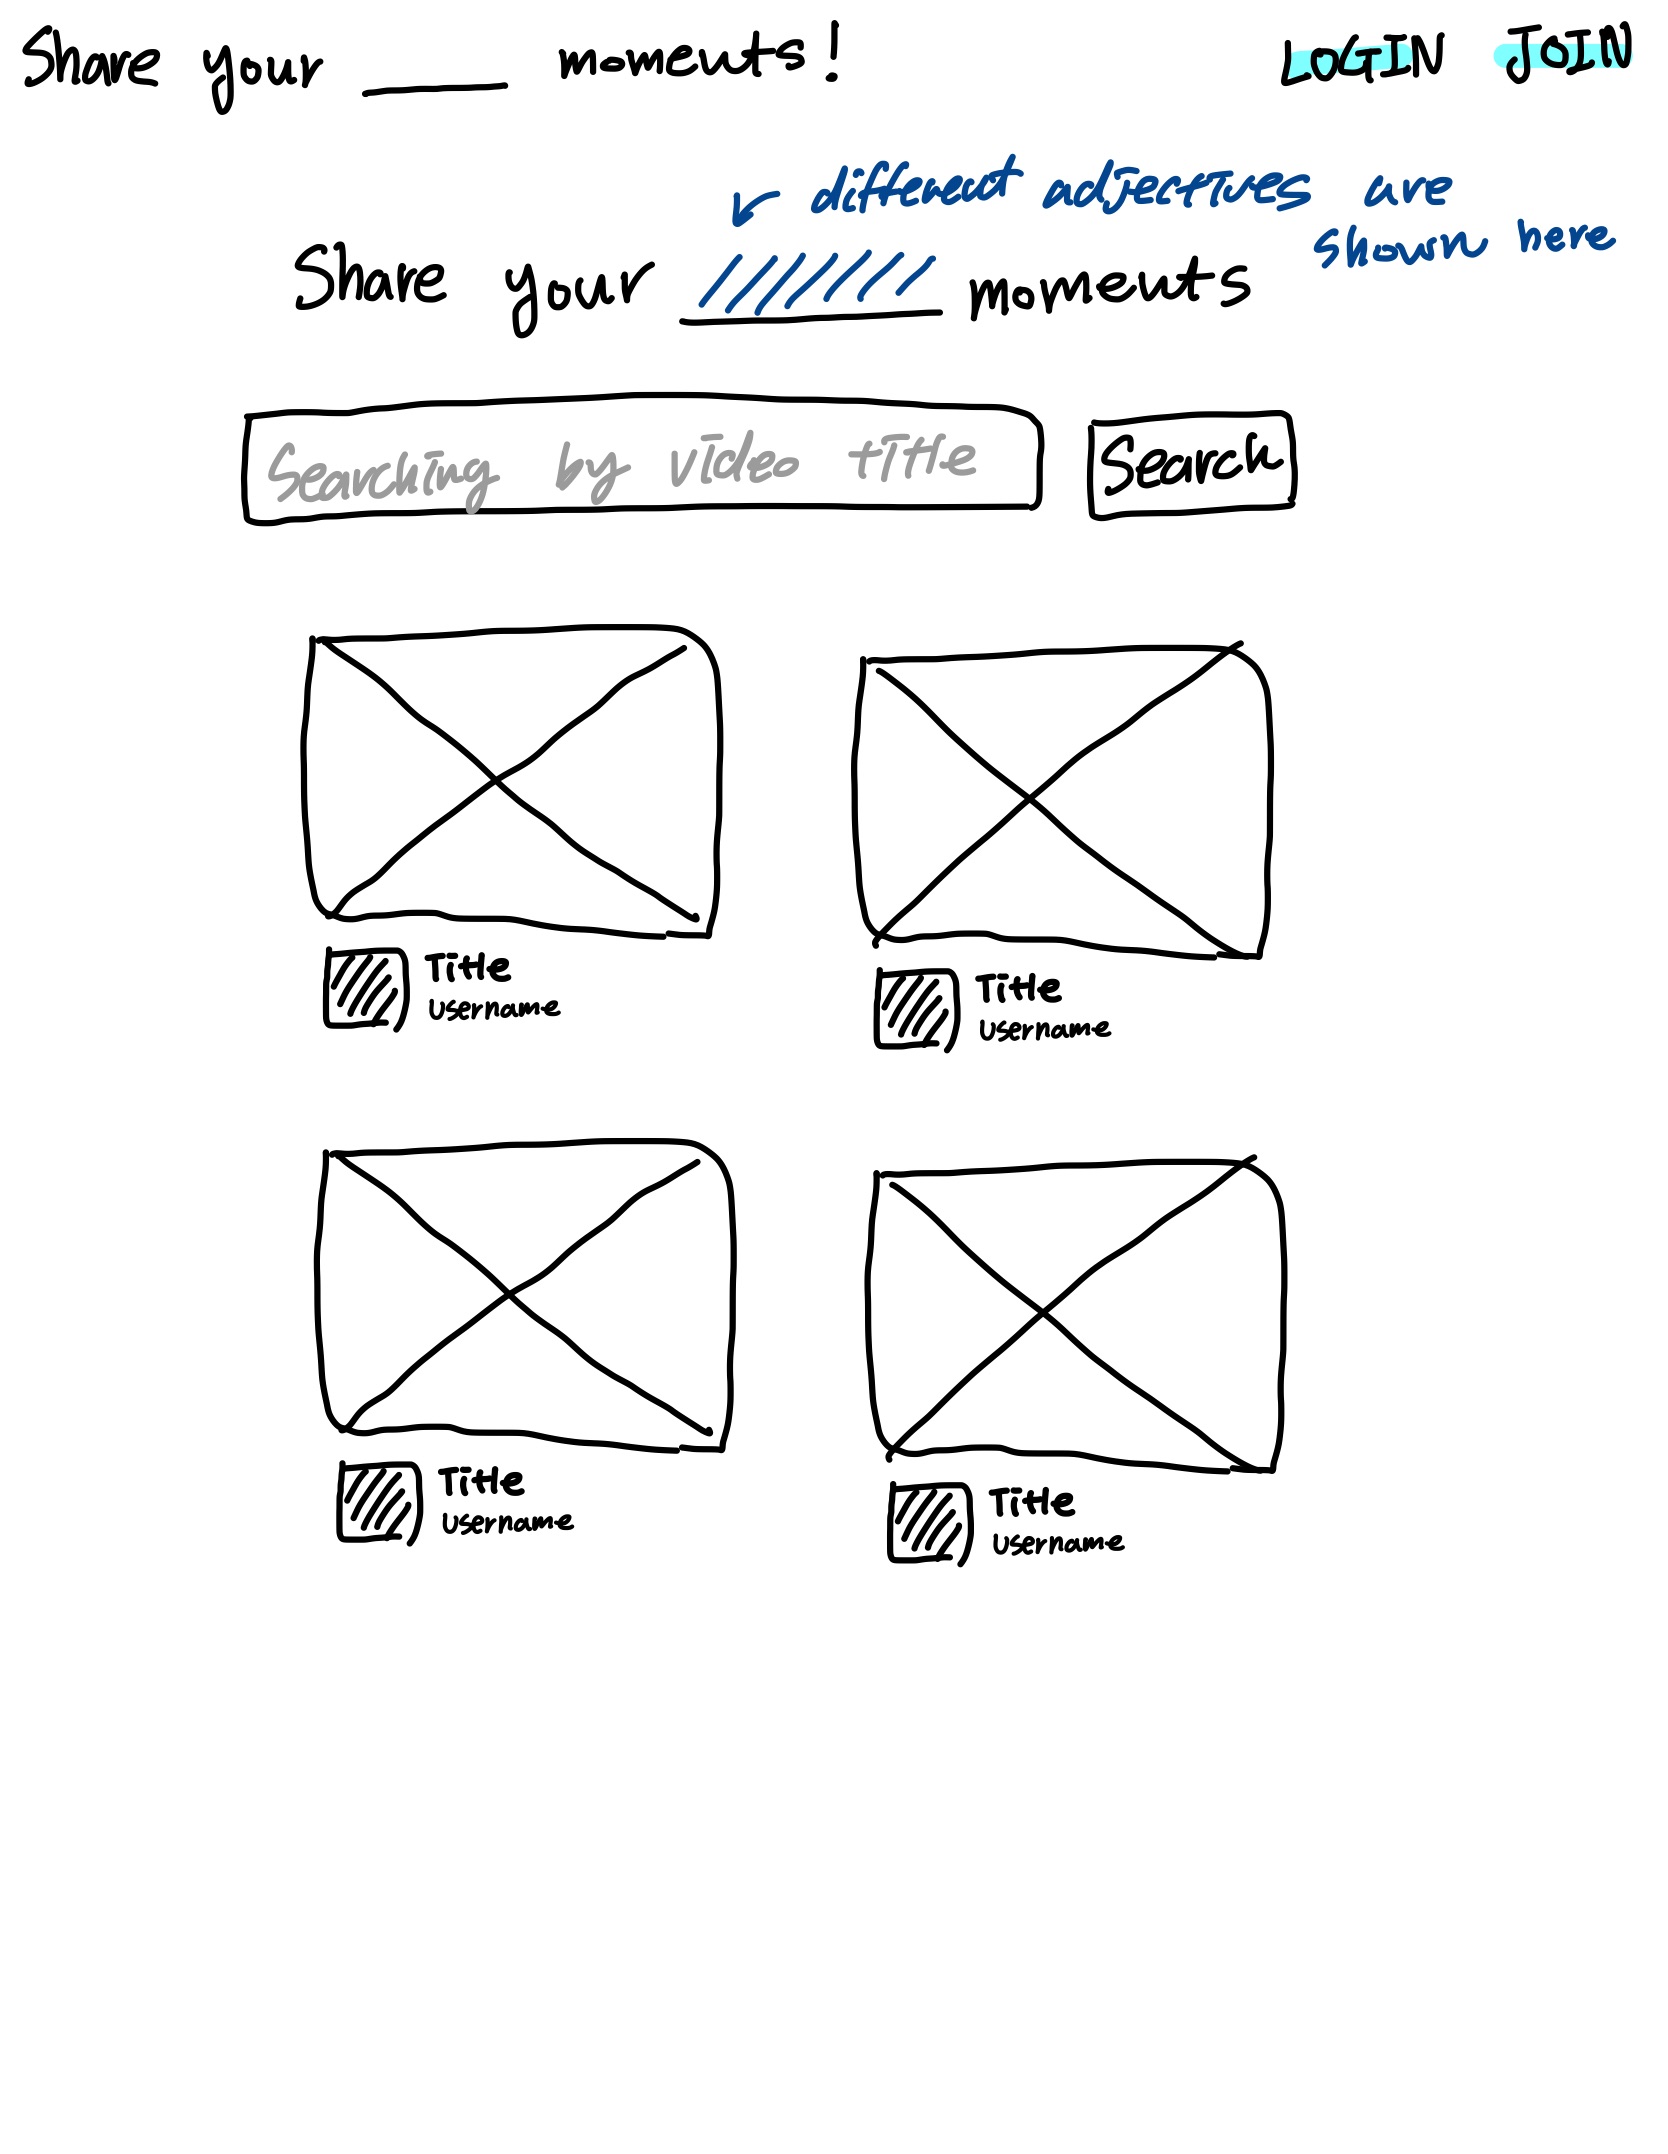 Share your ____ moments!
LOGIN JOIN
different adjectives are
shown here
Share your ____ moments
Searching by video title
Search
Title
username
Title
username
Title
username
Title
username